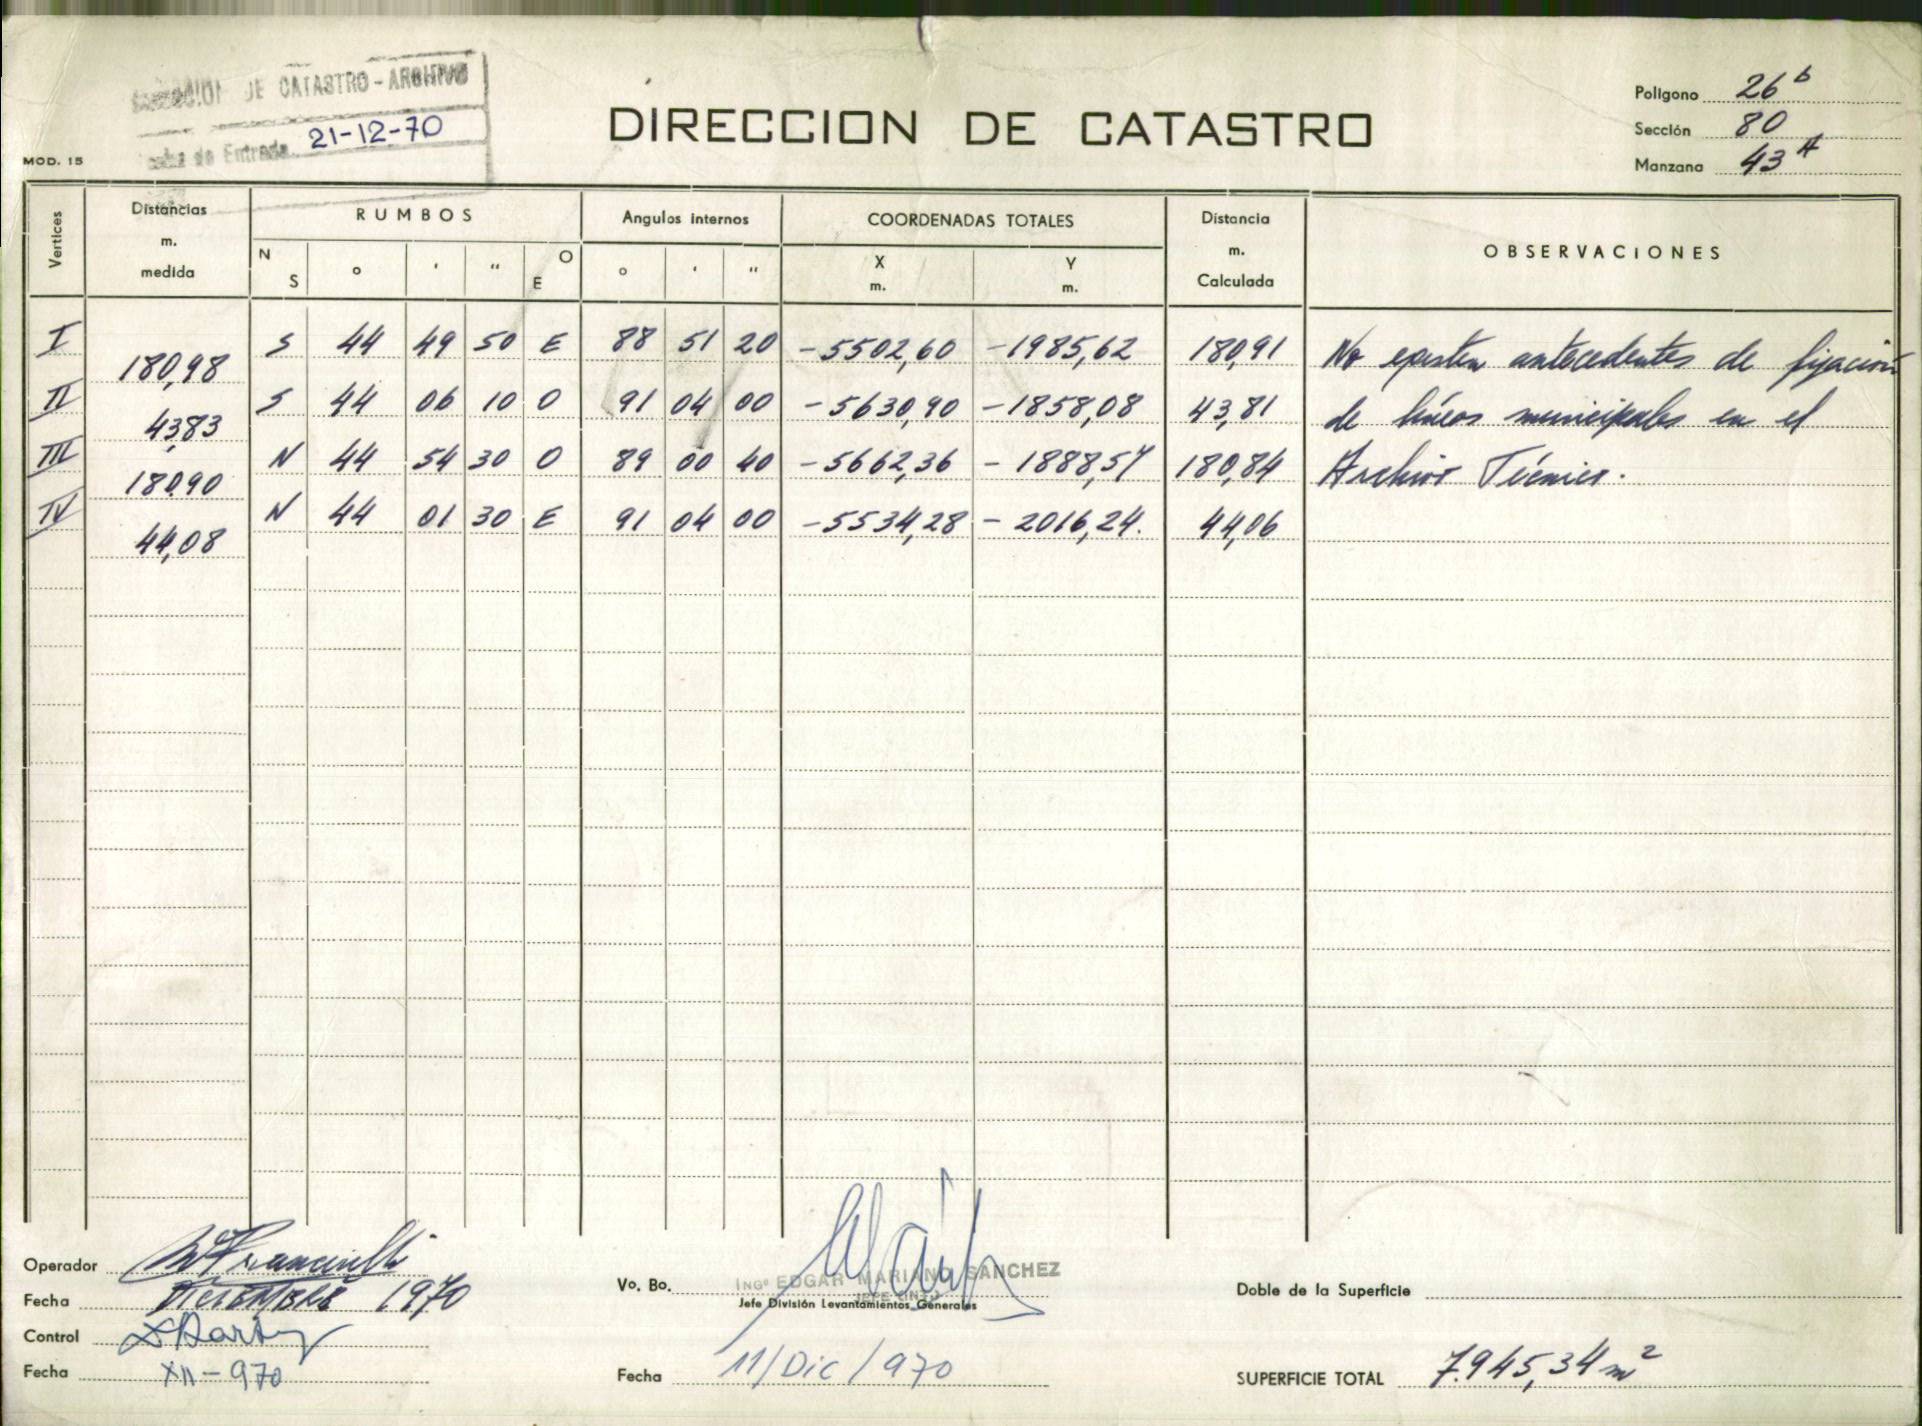 DE CATASTRO - ARCHIVO
de Entrada 21-12-70
MOD. 15
DIRECCION DE CATASTRO
Poligono 26 b
Sección 80
Manzana 43 A
Vertices
Distancias m. medida
RUMBOS
N S ° ' " O E
Angulos internos
° ' "
COORDENADAS TOTALES
X m. Y m.
Distancia m. Calculada
OBSERVACIONES
I S 44 49 50 E 88 51 20 -5502,60 -1985,62 180,91 No existen antecedentes de fijación
180,98
II S 44 06 10 O 91 04 00 -5630,90 -1858,08 43,81 de líneas municipales en el
43,83
III N 44 54 30 O 89 00 40 -5662,36 -1888,57 180,84 Archivo Técnico.
180,90
IV N 44 01 30 E 91 04 00 -5534,28 -2016,24. 44,06
44,08
Operador
Fecha DICIEMBRE 1970
Control
Fecha XII-970
Vo. Bo. INGº EDGAR MARIANO SANCHEZ
Jefe División Levantamientos Generales
Fecha 11/Dic/970
Doble de la Superficie
SUPERFICIE TOTAL 7.945,34 m²